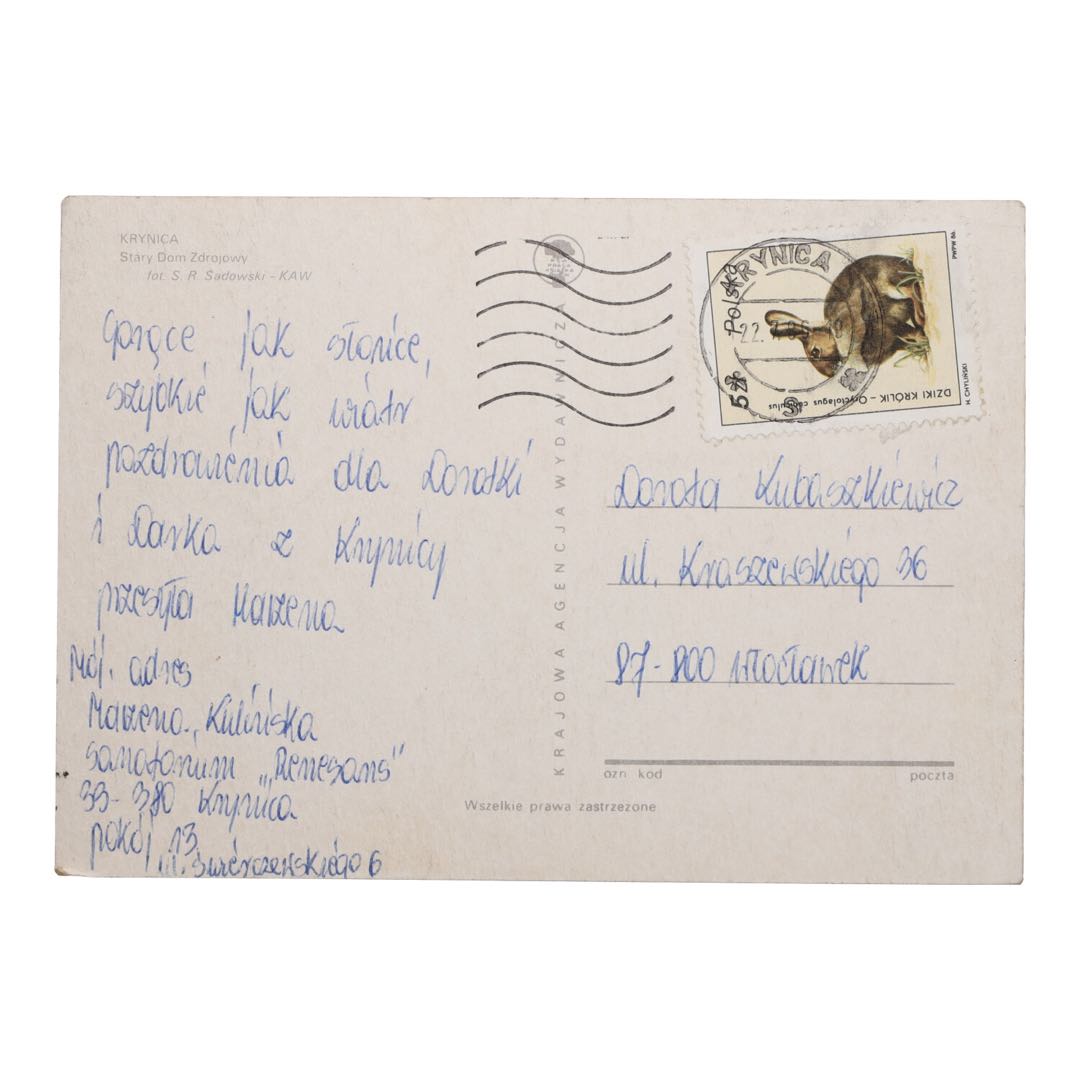 KRYNICA
Stary Dom Zdrojowy
fot. S. R. Sadowski - KAW
Gorące jak słońce,
szybkie jak wiatr
pozdrowienia dla Dorotki
i Darka z Krynicy
przesyła Marzena
Mój. adres
Marzena Kulińska
sanatorium „Renesans"
33-380 Krynica
pokój 13
ul. Świerczewskiego 6
KRAJOWA AGENCJA WYDAWNICZA
Polska
5 zł
DZIKI KRÓLIK - Oryctolagus cuniculus
H. CHYLIŃSKI
PWPW 86
KRYNICA
22.
Dorota Kubaszkiewicz
ul. Kraszewskiego 36
87-800 Włocławek
ozn kod
poczta
Wszelkie prawa zastrzeżone